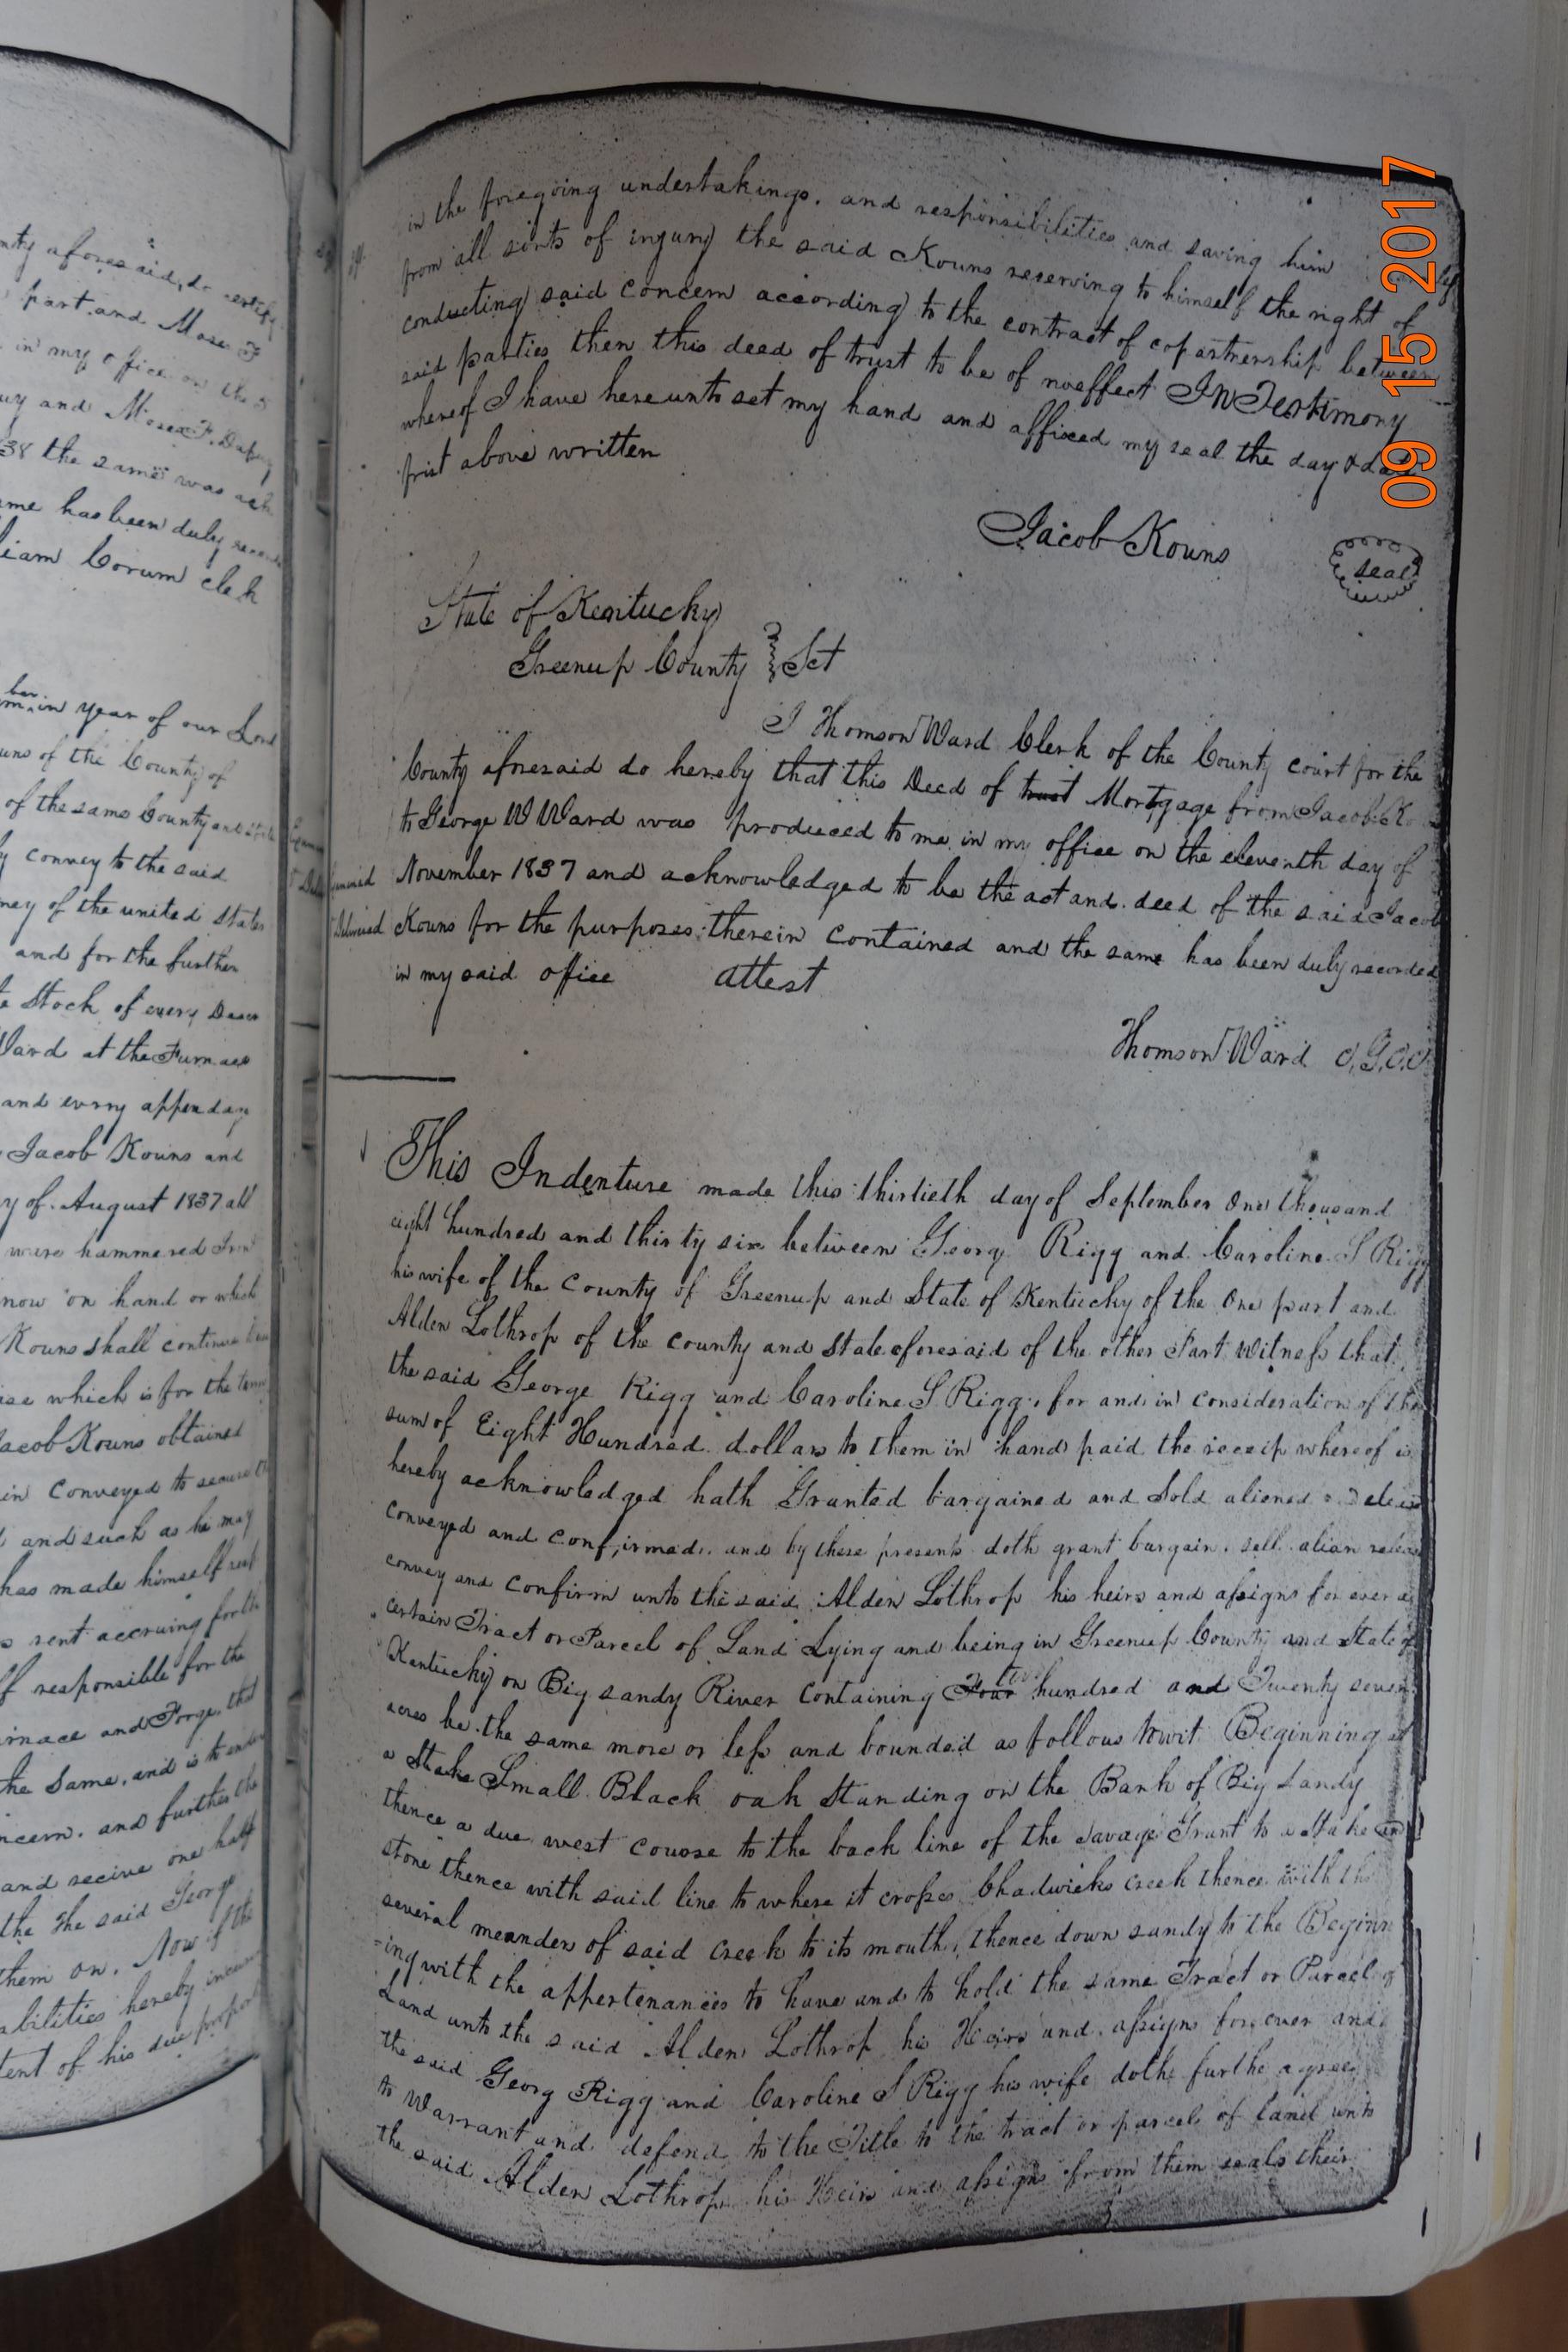 nty aforesaid, do certify
part and Mose F
in my office on the 5
uy and Moses F. Dupuy
38 the same was ack
me has been duly recor
liam Corum clek
ber
in year of our Lord
uns of the County of
of the same County and State
y convey to the said
ney of the united States
and for the further
Stock of every Descr
Ward at the Furnace
and evrry appendag
Jacob Kouns and
y of August 1837 all
ware hammered Iron
now on hand or which
Kouns shall continue
ise which is for the term
Jacob Kouns obtained
in Conveyed to secure
and such as he may
has made himself
rent accruing for the
f responsible for the
urnace and Forge that
the Same, and is to
ncern. and further the
and recive one half
the The said George
them on. Now if the
abilities hereby incur
tent of his due proport
in the foregoing undertakings. and responsibilities and saving him
from all sorts of ingury the said Kouns reserving to himself the right of
conducting said concern according to the contract of copartnership between
said parties then this deed of trust to be of no effect In Testimony
whereof I have hereunto set my hand and affixed my seal the day & date
frist above written
Jacob Kouns seal
State of Kentucky
Greenup County Sct
I Thomson Ward Clerk of the County court for the
County aforesaid do hereby that this Deed of trust Mortgage from Jacob Ko
to George W Ward was produced to me in my office on the eleventh day of
November 1837 and acknowledged to be the act and deed of the said Jacob
Delivered Kouns for the purposes therein contained and the same has been duly recorded
in my said office attest
Thomson Ward C.G.C.C.
This Indenture made this thirtieth day of September One thousand
eight hundred and thirty six between Georg Rigg and Caroline S Rigg
his wife of the County of Greenup and State of Kentucky of the One part and
Alden Lothrop of the county and State aforesaid of the other Part Witness that
the said George Rigg and Caroline S Rigg, for and in consideration of the
sum of Eight Hundred dollars to them in hand paid the receip whereof is
hereby acknowledged hath Granted bargained and Sold aliened
conveyed and confirmed. and by these presents doth grant bargain. sell. alian release
convey and confirm unto the said Alden Lothrop his heirs and assigns for ever a
certain Tract or Parcel of Land Lying and being in Greenup County and State of
Kentucky on Big sandy River Containing Four two hundred and Twenty seven
acres be the same more or less and bounded as follows towit Beginning at
a Stake Small Black oak Standing on the Bank of Big Sandy
thence a due west couose to the back line of the Savage Grant to a Stake
stone thence with said line to where it crosses Chadwicks creek thence with the
several meanders of said Creek to its mouth, thence down sandy to the Beginn
-ing with the appertenances to have and to hold the same Tract or Parcel of
Land unto the said Alden Lothrop his Heirs and assigns for ever and
the said Georg Rigg and Caroline S Rigg his wife doth furthe agree
to Warrant and defend to the Title to the tract or parcel of land unto
the said Alden Lothrop his Heirs and assigns from them seals their
09 15 2017